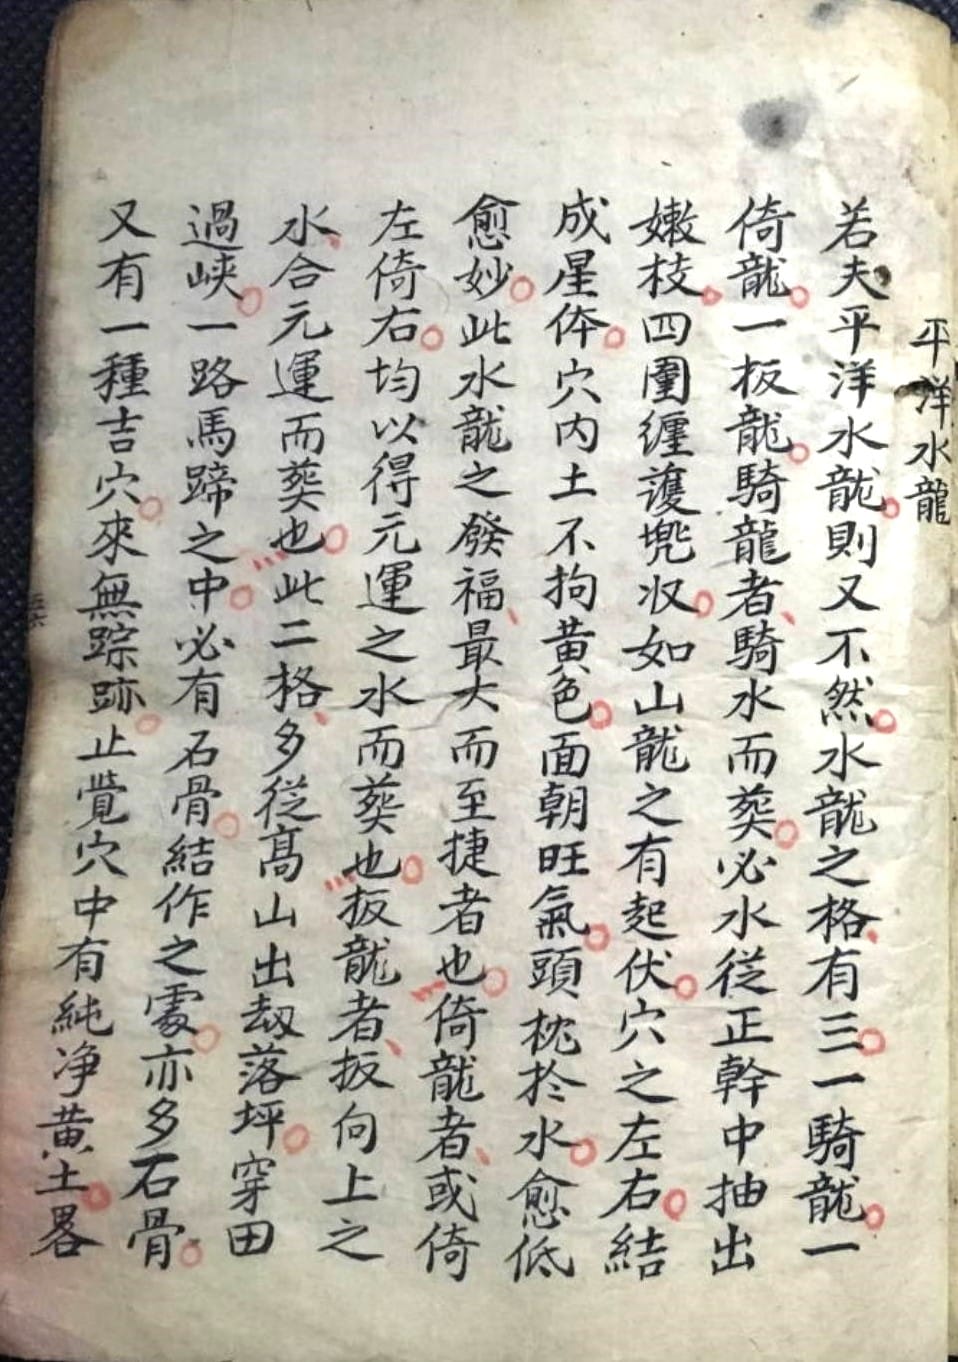 平洋水龍
若夫平洋水龍則又不然水龍之格有三一騎龍一
倚龍一扳龍騎龍者騎水而葬必水從正幹中抽出
嫩枝四圍纏護兜収如山龍之有起伏穴之左右結
成星体穴内土不拘黄色面朝旺氣頭枕扵水愈低
愈妙此水龍之發福最大而至捷者也倚龍者或倚
左倚右均以得元運之水而葬也扳龍者扳向上之
水合元運而葬也此二格多從髙山出刼落坪穿田
過峽一路馬蹄之中必有石骨結作之處亦多石骨
又有一種吉穴來無踪跡止覺穴中有純净黄土畧